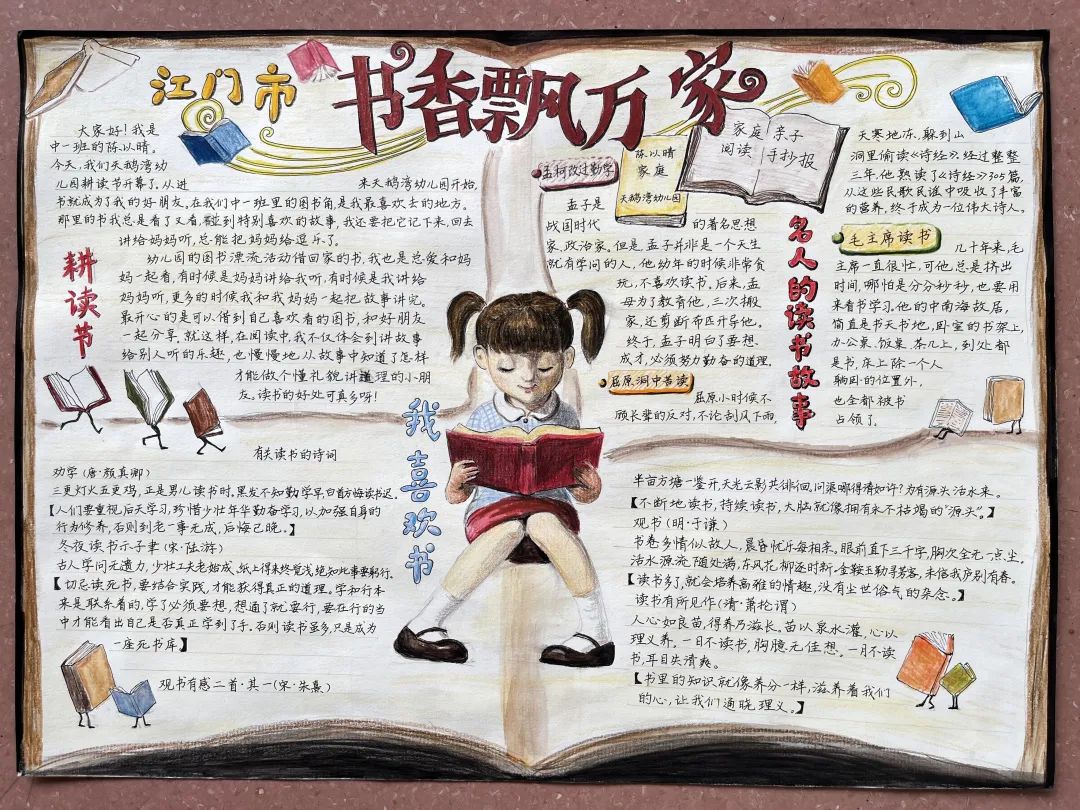 江门市
书香飘万家
陈以晴
家庭
天鹅湾幼儿园
家庭 亲子
阅读 手抄报
耕读节
大家好！我是
中一班的陈以晴。
今天，我们天鹅湾幼
儿园耕读书开幕了，从进
来天鹅湾幼儿园开始，
书就成为了我的好朋友，在我们中一班里的图书角，是我最喜欢去的地方。
那里的书我总是看了又看，碰到特别喜欢的故事，我还要把它记下来，回去
讲给妈妈听，总能把妈妈给逗乐了。
幼儿园的图书漂流活动借回家的书，我也是总爱和妈
妈一起看，有时候是妈妈讲给我听，有时候是我讲给
妈妈听，更多的时候我和我妈妈一起把故事讲完。
最开心的是可以借到自己喜欢看的图书，和好朋友
一起分享，就这样，在阅读中，我不仅体会到讲故事
给别人听的乐趣，也慢慢地，从故事中知道了怎样
才能做个懂礼貌讲道理的小朋
友。读书的好处可真多呀！
孟柯改过勤学
孟子是
战国时代
的著名思想
家，政治家。但是，孟子并非是一个天生
就有学问的人，他幼年的时候非常贪
玩，不喜欢读书，后来，孟
母为了教育他，三次搬
家，还剪断布匹开导他。
终于，孟子明白了要想
成才，必须努力勤奋的道理。
屈原洞中苦读
屈原小时候不
顾长辈的反对，不论刮风下雨，
名人的读书故事
天寒地冻、躲到山
洞里偷读《诗经》，经过整整
三年，他熟读了《诗经》305篇，
从这些民歌民谣中吸收了丰富
的营养，终于成为一位伟大诗人。
毛主席读书
几十年来，毛
主席一直很忙，可他总是挤出
时间，哪怕是分分秒秒，也要用
来看书学习。他的中南海故居，
简直是书天书地，卧室的书架上，
办公桌、饭桌、茶几上，到处都
是书，床上除一个人
躺卧的位置外，
也全都被书
占领了。
我喜欢书
有关读书的诗词
劝学（唐·颜真卿）
三更灯火五更鸡，正是男儿读书时。黑发不知勤学早，白首方悔读书迟。
【人们要重视后天学习，珍惜少壮年华勤奋学习，以加强自身的
行为修养，否则到老一事无成，后悔已晚。】
冬夜读书示子聿（宋·陆游）
古人学问无遗力，少壮工夫老始成。纸上得来终觉浅，绝知此事要躬行。
【切忌读死书，要结合实践，才能获得真正的道理。学和行本
来是联系着的，学了必须要想，想通了就要行，要在行的当
中才能看出自己是否真正学到了手。否则读书虽多，只是成为
一座死书库】
观书有感二首·其一（宋·朱熹）
半亩方塘一鉴开，天光云影共徘徊。问渠哪得清如许？为有源头活水来。
【不断地读书，持续读书，大脑就像拥有永不枯竭的“源头”。】
观书（明·于谦）
书卷多情似故人，晨昏忧乐每相亲。眼前直下三千字，胸次全无一点尘。
活水源流随处满，东风花柳逐时新。金鞍玉勒寻芳客，未信我庐别有春。
【读书多了，就会培养高雅的情趣，没有尘世俗气的杂念。】
读书有所见作（清·萧抡谓）
人心如良苗，得养乃滋长。苗以泉水灌，心以
理义养。一日不读书，胸臆无佳想。一月不读
书，耳目失清爽。
【书里的知识就像养分一样，滋养着我们
的心，让我们通晓理义。】